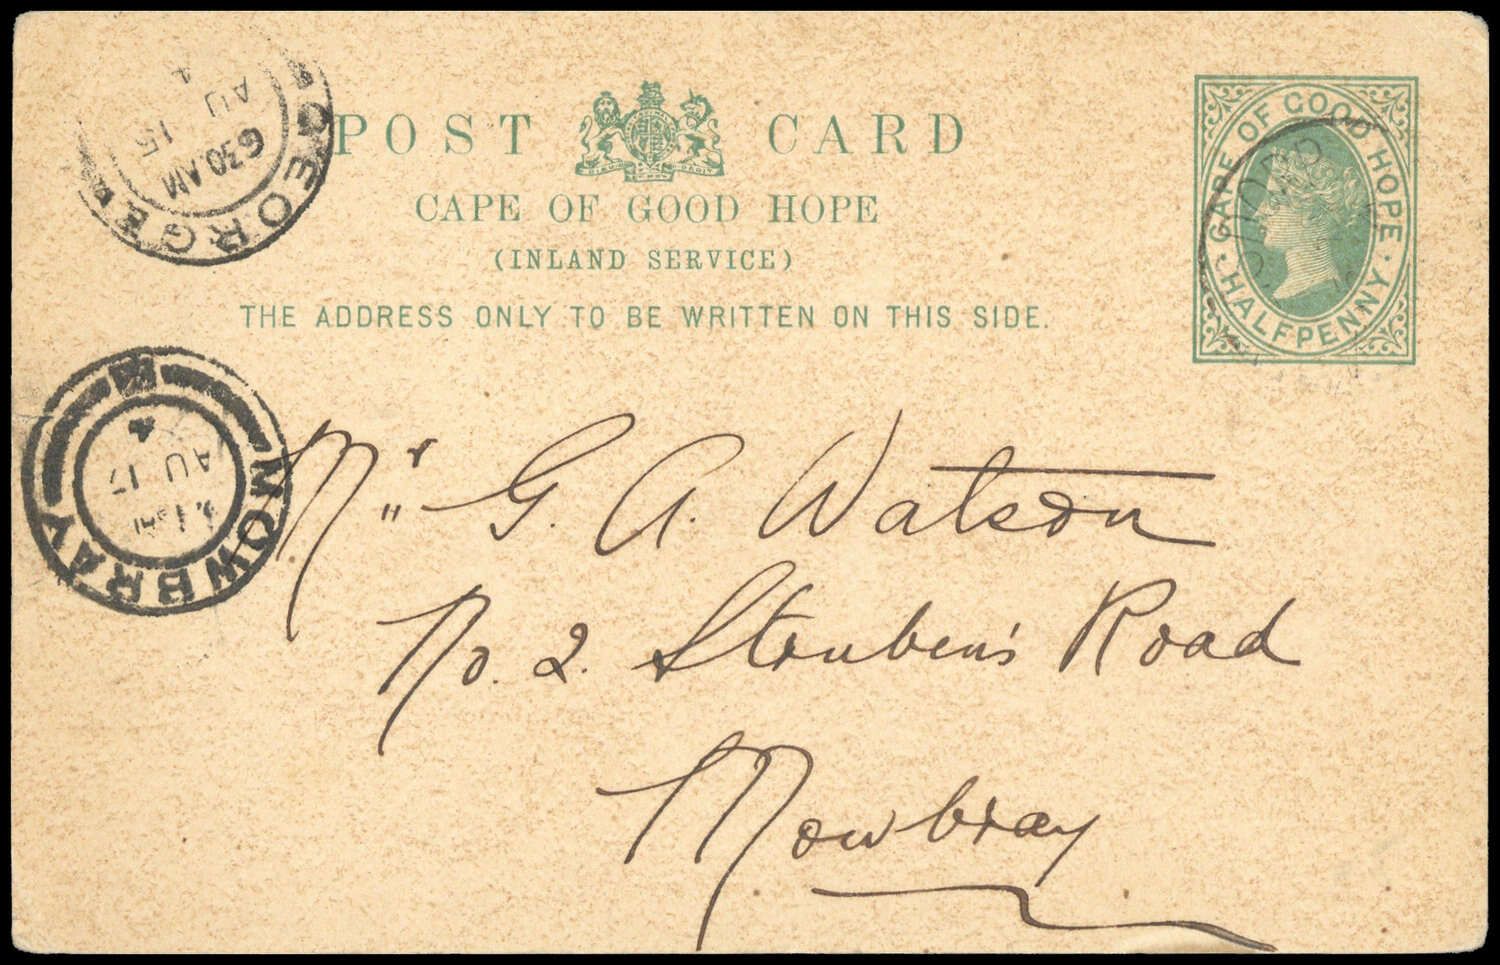 POST CARD
CAPE OF GOOD HOPE
(INLAND SERVICE)
THE ADDRESS ONLY TO BE WRITTEN ON THIS SIDE.
CAPE OF GOOD HOPE
HALFPENNY
GEORGE
6 30 AM
AU 15
4
MOWBRAY
AU 17
4
Mr G. A. Watson
No. 2. Struben's Road
Mowbray